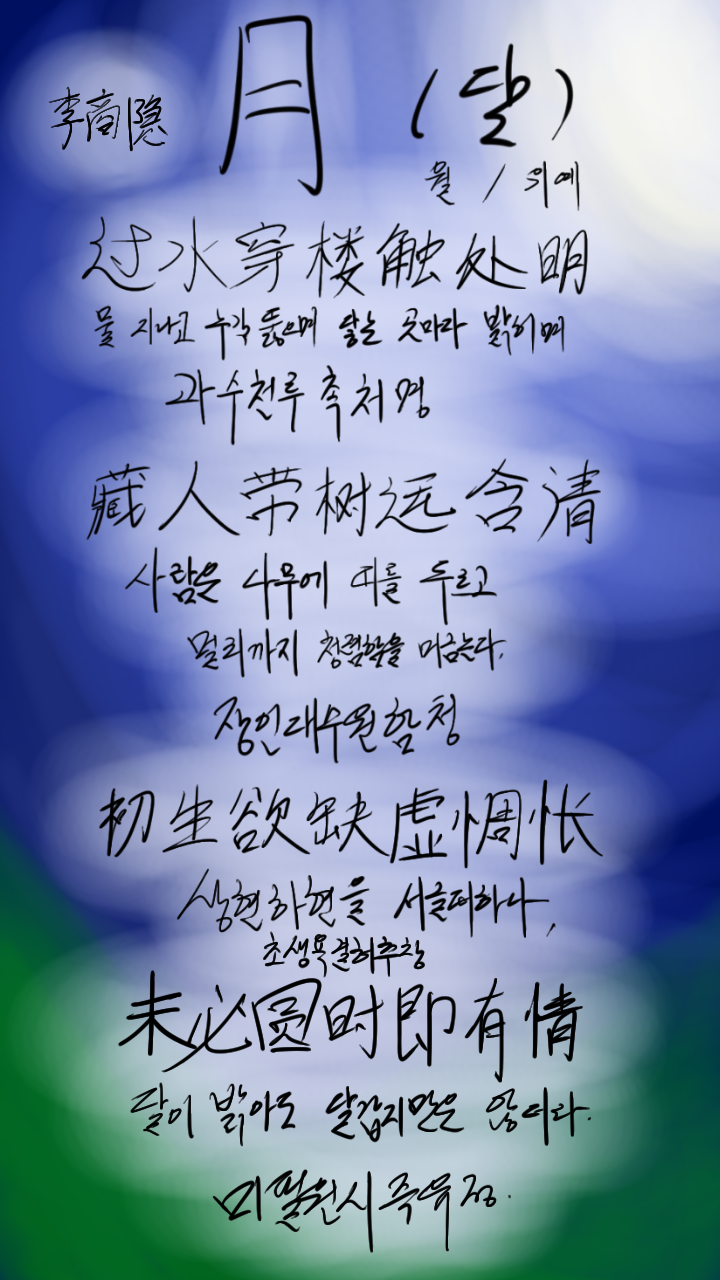 李商隐 月 (달)
월 / 위예
过水穿楼触处明
물 지나고 누각 뚫으며 닿는 곳마다 밝히며
과수천루촉처명
藏人带树远含清
사람은 나무에 띠를 두르고
멀리까지 청렴함을 머금는다.
장인대수원함청
初生欲缺虚惆怅
상현하현을 서글퍼하나,
초생욕결허추창
未必圆时即有情
달이 밝아도 달갑지만은 않더라.
미필원시즉유정.